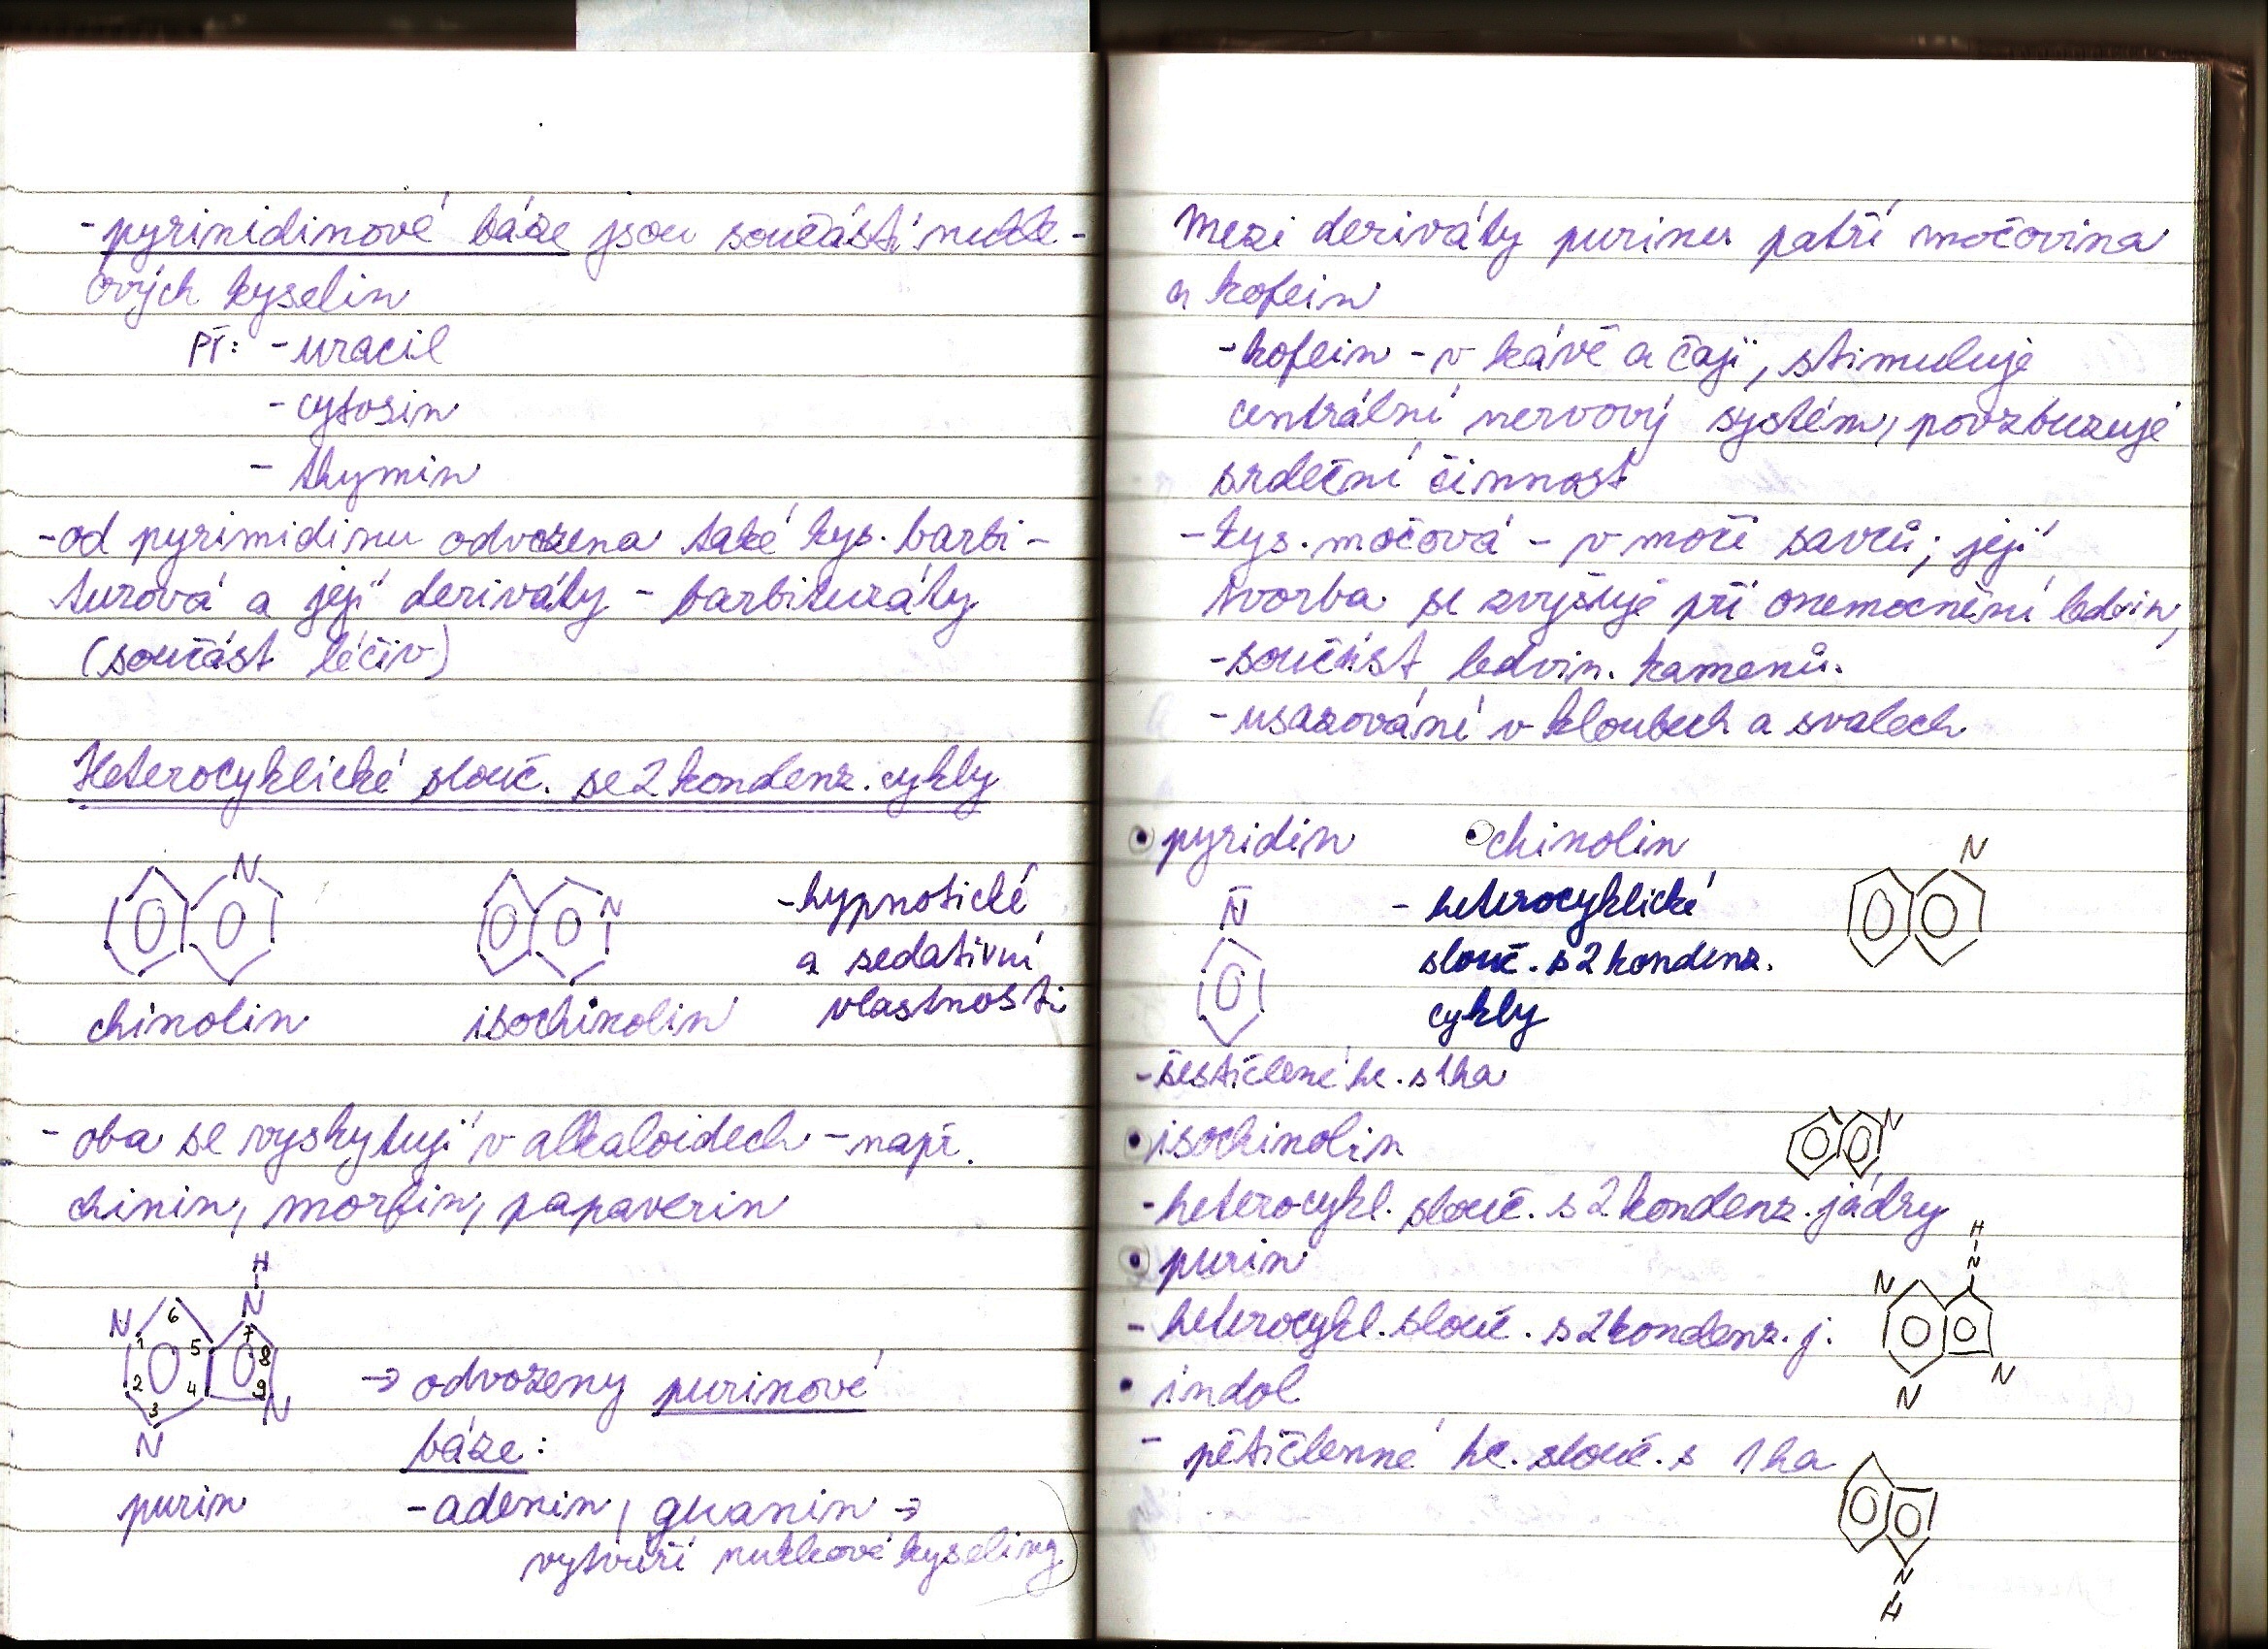 -pyrimidinové báze jsou součástí nukle-
ových kyselin
Př: -uracil
-cytosin
- thymin
-od pyrimidinu odvozena také kys. barbi-
turová a její deriváty - barbituráty
(součást léčiv)
Heterocyklické slouč. se 2 kondenz. cykly
N
N
-hypnotické
a sedativní
vlastnosti
chinolin
isochinolin
- oba se vyskytují v alkaloidech - např.
chinin, morfin, papaverin
H
N
N
6
1
5
7
8
2
4
9
3
N
N
purin
→ odvozeny purinové
báze:
-adenin, guanin →
vytváří nukleové kyseliny
Mezi deriváty purinu patří močovina
a kofein
-kofein - v kávě a čaji, stimuluje
centrální nervový systém, povzbuzuje
srdeční činnost
-kys. močová - v moči savců; její
tvorba se zvyšuje při onemocnění ledvin,
-součást ledvin. kamenů.
-usazování v kloubech a svalech
• pyridin
• chinolin
N
N
- heterocyklické
slouč. s 2 kondenz.
cykly
-šestičlené hc. s 1ha
• isochinolin
N
-heterocykl. slouč. s 2 kondenz. jádry
• purin
H
N
N
N
N
- heterocykl. slouč. s 2 kondenz. j.
• indol
- pětičlenné hc. slouč. s 1 ha
N
H